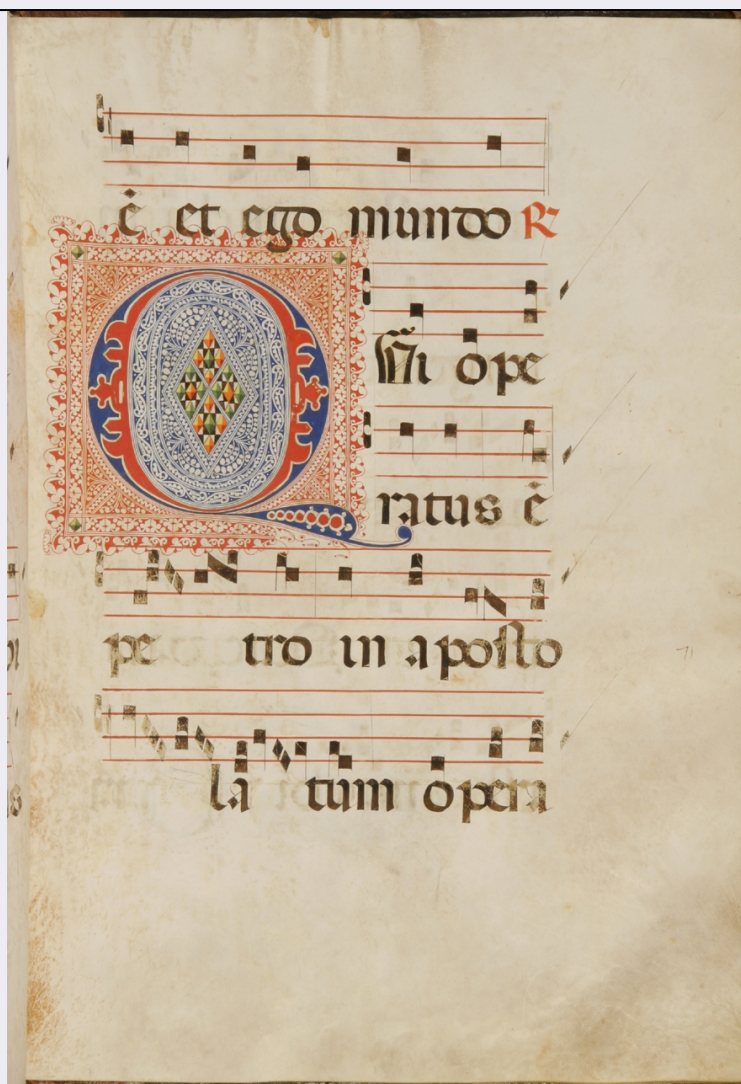 ē et ego mundo R
Qui ope
ratus ē
pe tro in aposto
la tum opera